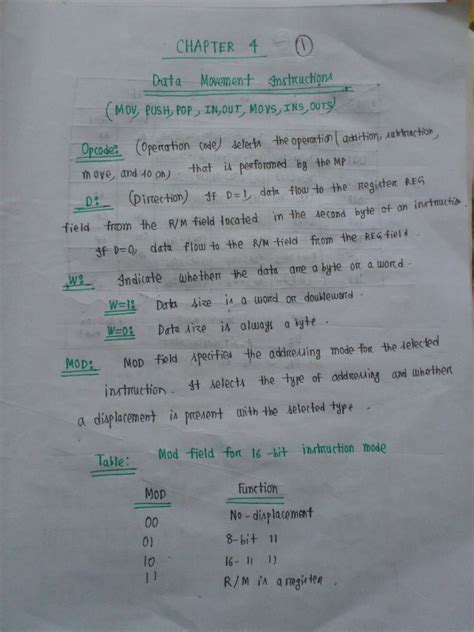 CHAPTER 4 ①
Data Movement Instructions
(MOV, PUSH, POP, IN, OUT, MOVS, INS, OUTS)
Opcode: (Operation code) selects the operation (addition, subtraction,
move, and so on) that is performed by the MP.
D: (Direction) If D=1, data flow to the register REG
field from the R/M field located in the second byte of an instruction
If D=0, data flow to the R/M field from the REG field.
W: Indicate whether the data are a byte or a word.
W=1: Data size is a word or doubleword.
W=0: Data size is always a byte.
MOD: MOD field specifies the addressing mode for the selected
instruction. It selects the type of addressing and whether
a displacement is present with the selected type.
Table: Mod field for 16-bit instruction mode
MOD Function
00 No-displacement
01 8-bit 11
10 16- 11 11
11 R/M is a register.